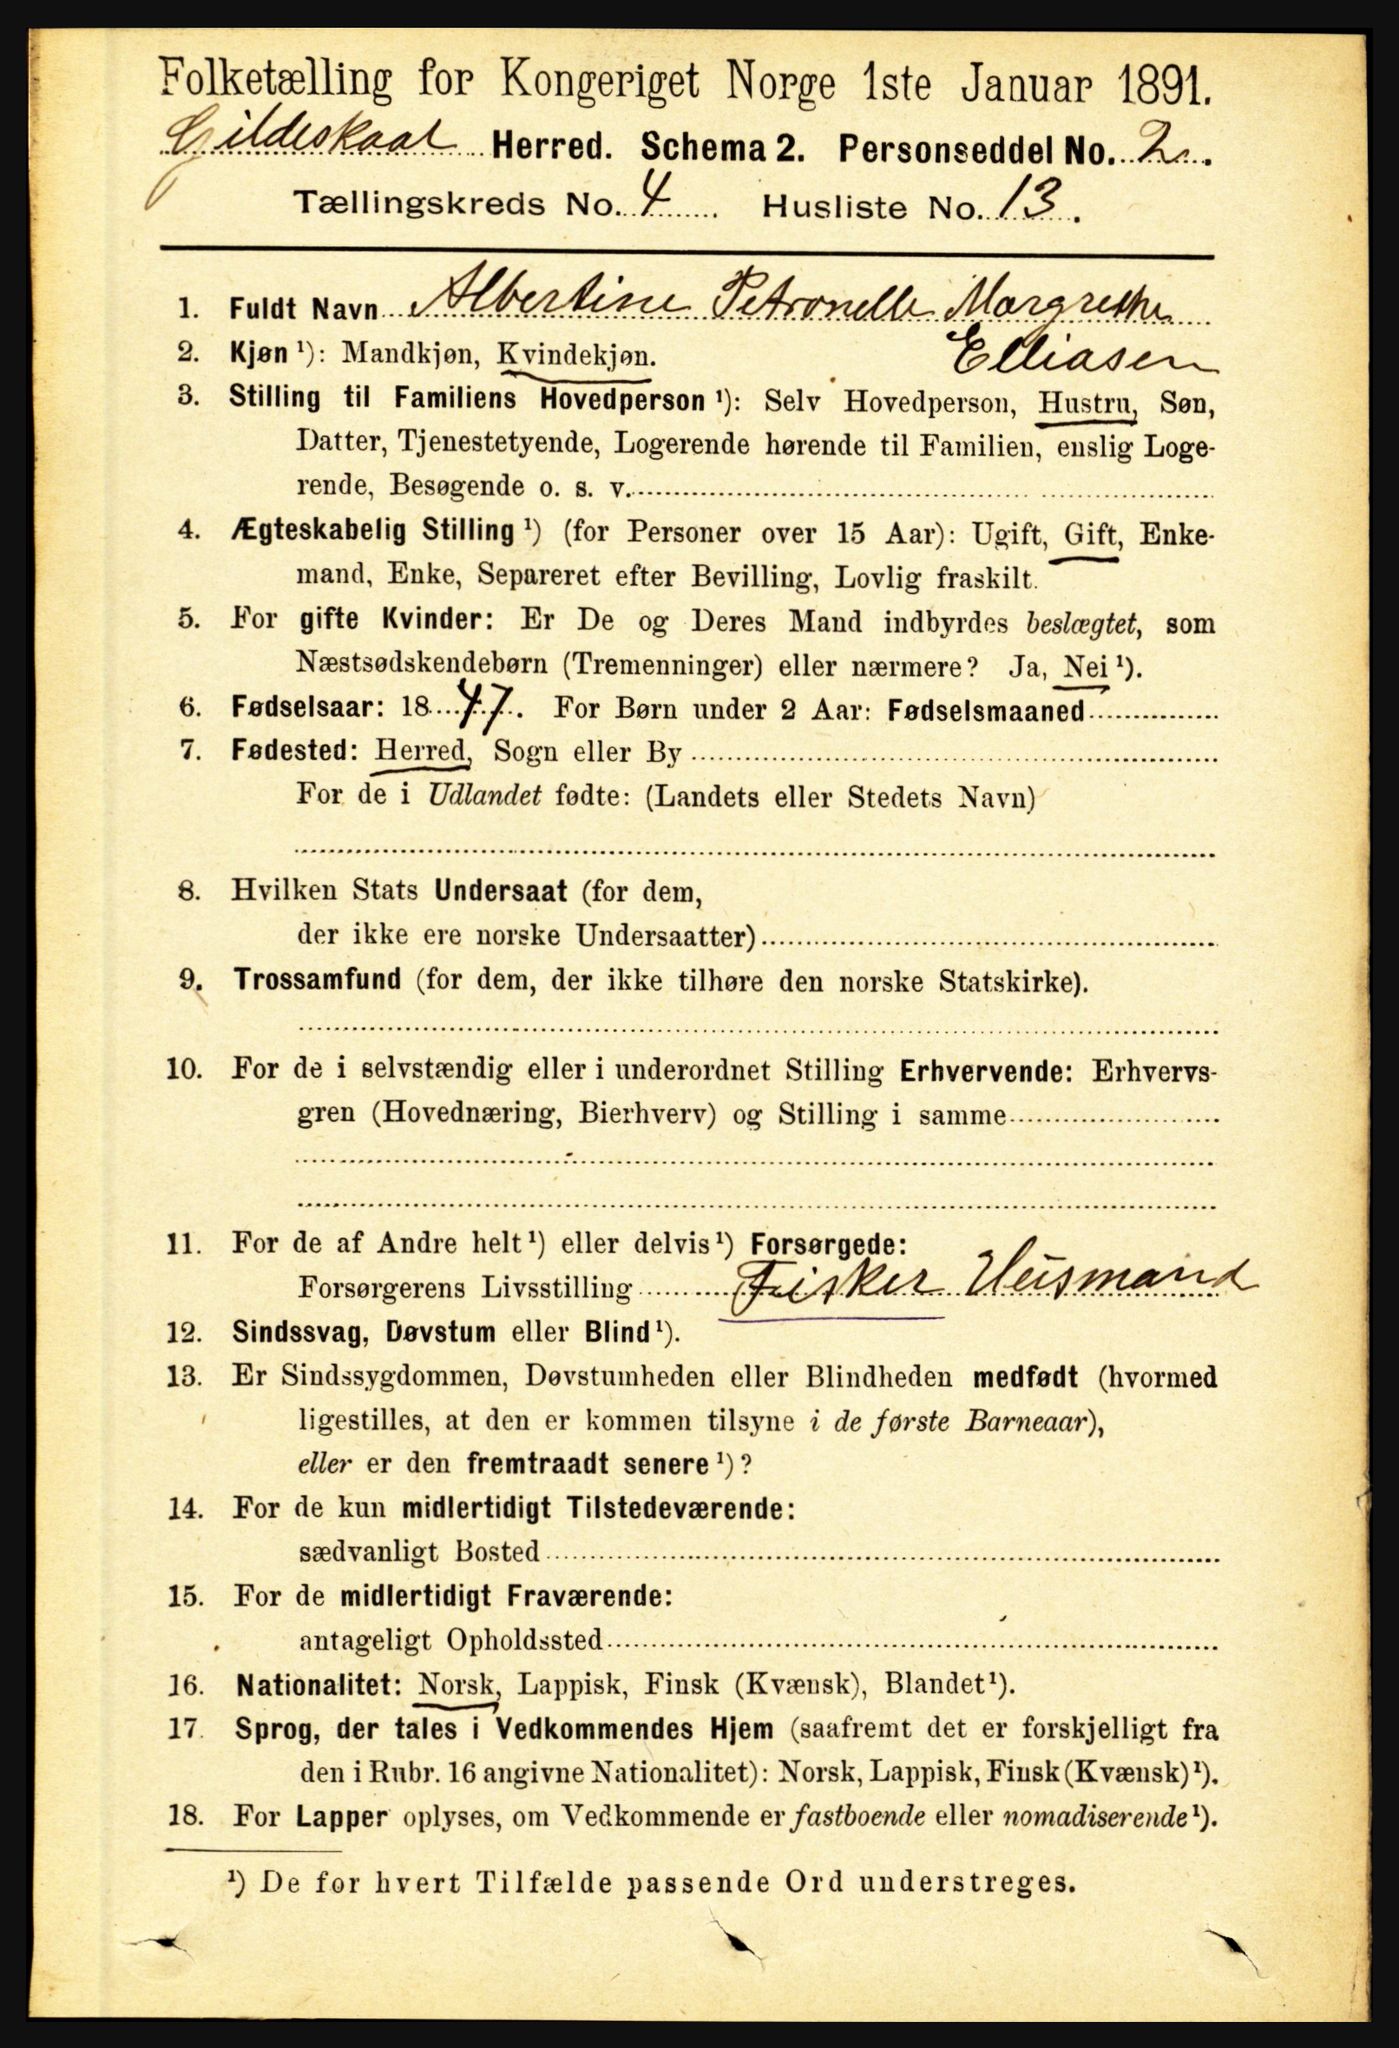 Folketælling for Kongeriget Norge 1ste Januar 1891.
Gildeskaal Herred. Schema 2. Personseddel No. 2.
Tællingskreds No. 4 Husliste No. 13.
1. Fuldt Navn Albertine Petronelle Margrethe
Elliasen
2. Kjøn ¹): Mandkjøn, Kvindekjøn.
3. Stilling til Familiens Hovedperson ¹): Selv Hovedperson, Hustru, Søn,
Datter, Tjenestetyende, Logerende hørende til Familien, enslig Loge-
rende, Besøgende o. s. v.
4. Ægteskabelig Stilling ¹) (for Personer over 15 Aar): Ugift, Gift, Enke-
mand, Enke, Separeret efter Bevilling, Lovlig fraskilt.
5. For gifte Kvinder: Er De og Deres Mand indbyrdes beslægtet, som
Næstsødskendebørn (Tremenninger) eller nærmere? Ja, Nei ¹).
6. Fødselsaar: 1847. For Børn under 2 Aar: Fødselsmaaned
7. Fødested: Herred, Sogn eller By
For de i Udlandet fødte: (Landets eller Stedets Navn)
8. Hvilken Stats Undersaat (for dem,
der ikke ere norske Undersaatter)
9. Trossamfund (for dem, der ikke tilhøre den norske Statskirke).
10. For de i selvstændig eller i underordnet Stilling Erhvervende: Erhvervs-
gren (Hovednæring, Bierhverv) og Stilling i samme
11. For de af Andre helt ¹) eller delvis ¹) Forsørgede:
Forsørgerens Livsstilling Fisker Husmand
12. Sindssvag, Døvstum eller Blind ¹).
13. Er Sindssygdommen, Døvstumheden eller Blindheden medfødt (hvormed
ligestilles, at den er kommen tilsyne i de første Barneaar),
eller er den fremtraadt senere ¹)?
14. For de kun midlertidigt Tilstedeværende:
sædvanligt Bosted
15. For de midlertidigt Fraværende:
antageligt Opholdssted
16. Nationalitet: Norsk, Lappisk, Finsk (Kvænsk), Blandet ¹).
17. Sprog, der tales i Vedkommendes Hjem (saafremt det er forskjelligt fra
den i Rubr. 16 angivne Nationalitet): Norsk, Lappisk, Finsk (Kvænsk) ¹).
18. For Lapper oplyses, om Vedkommende er fastboende eller nomadiserende ¹).
¹) De for hvert Tilfælde passende Ord understreges.